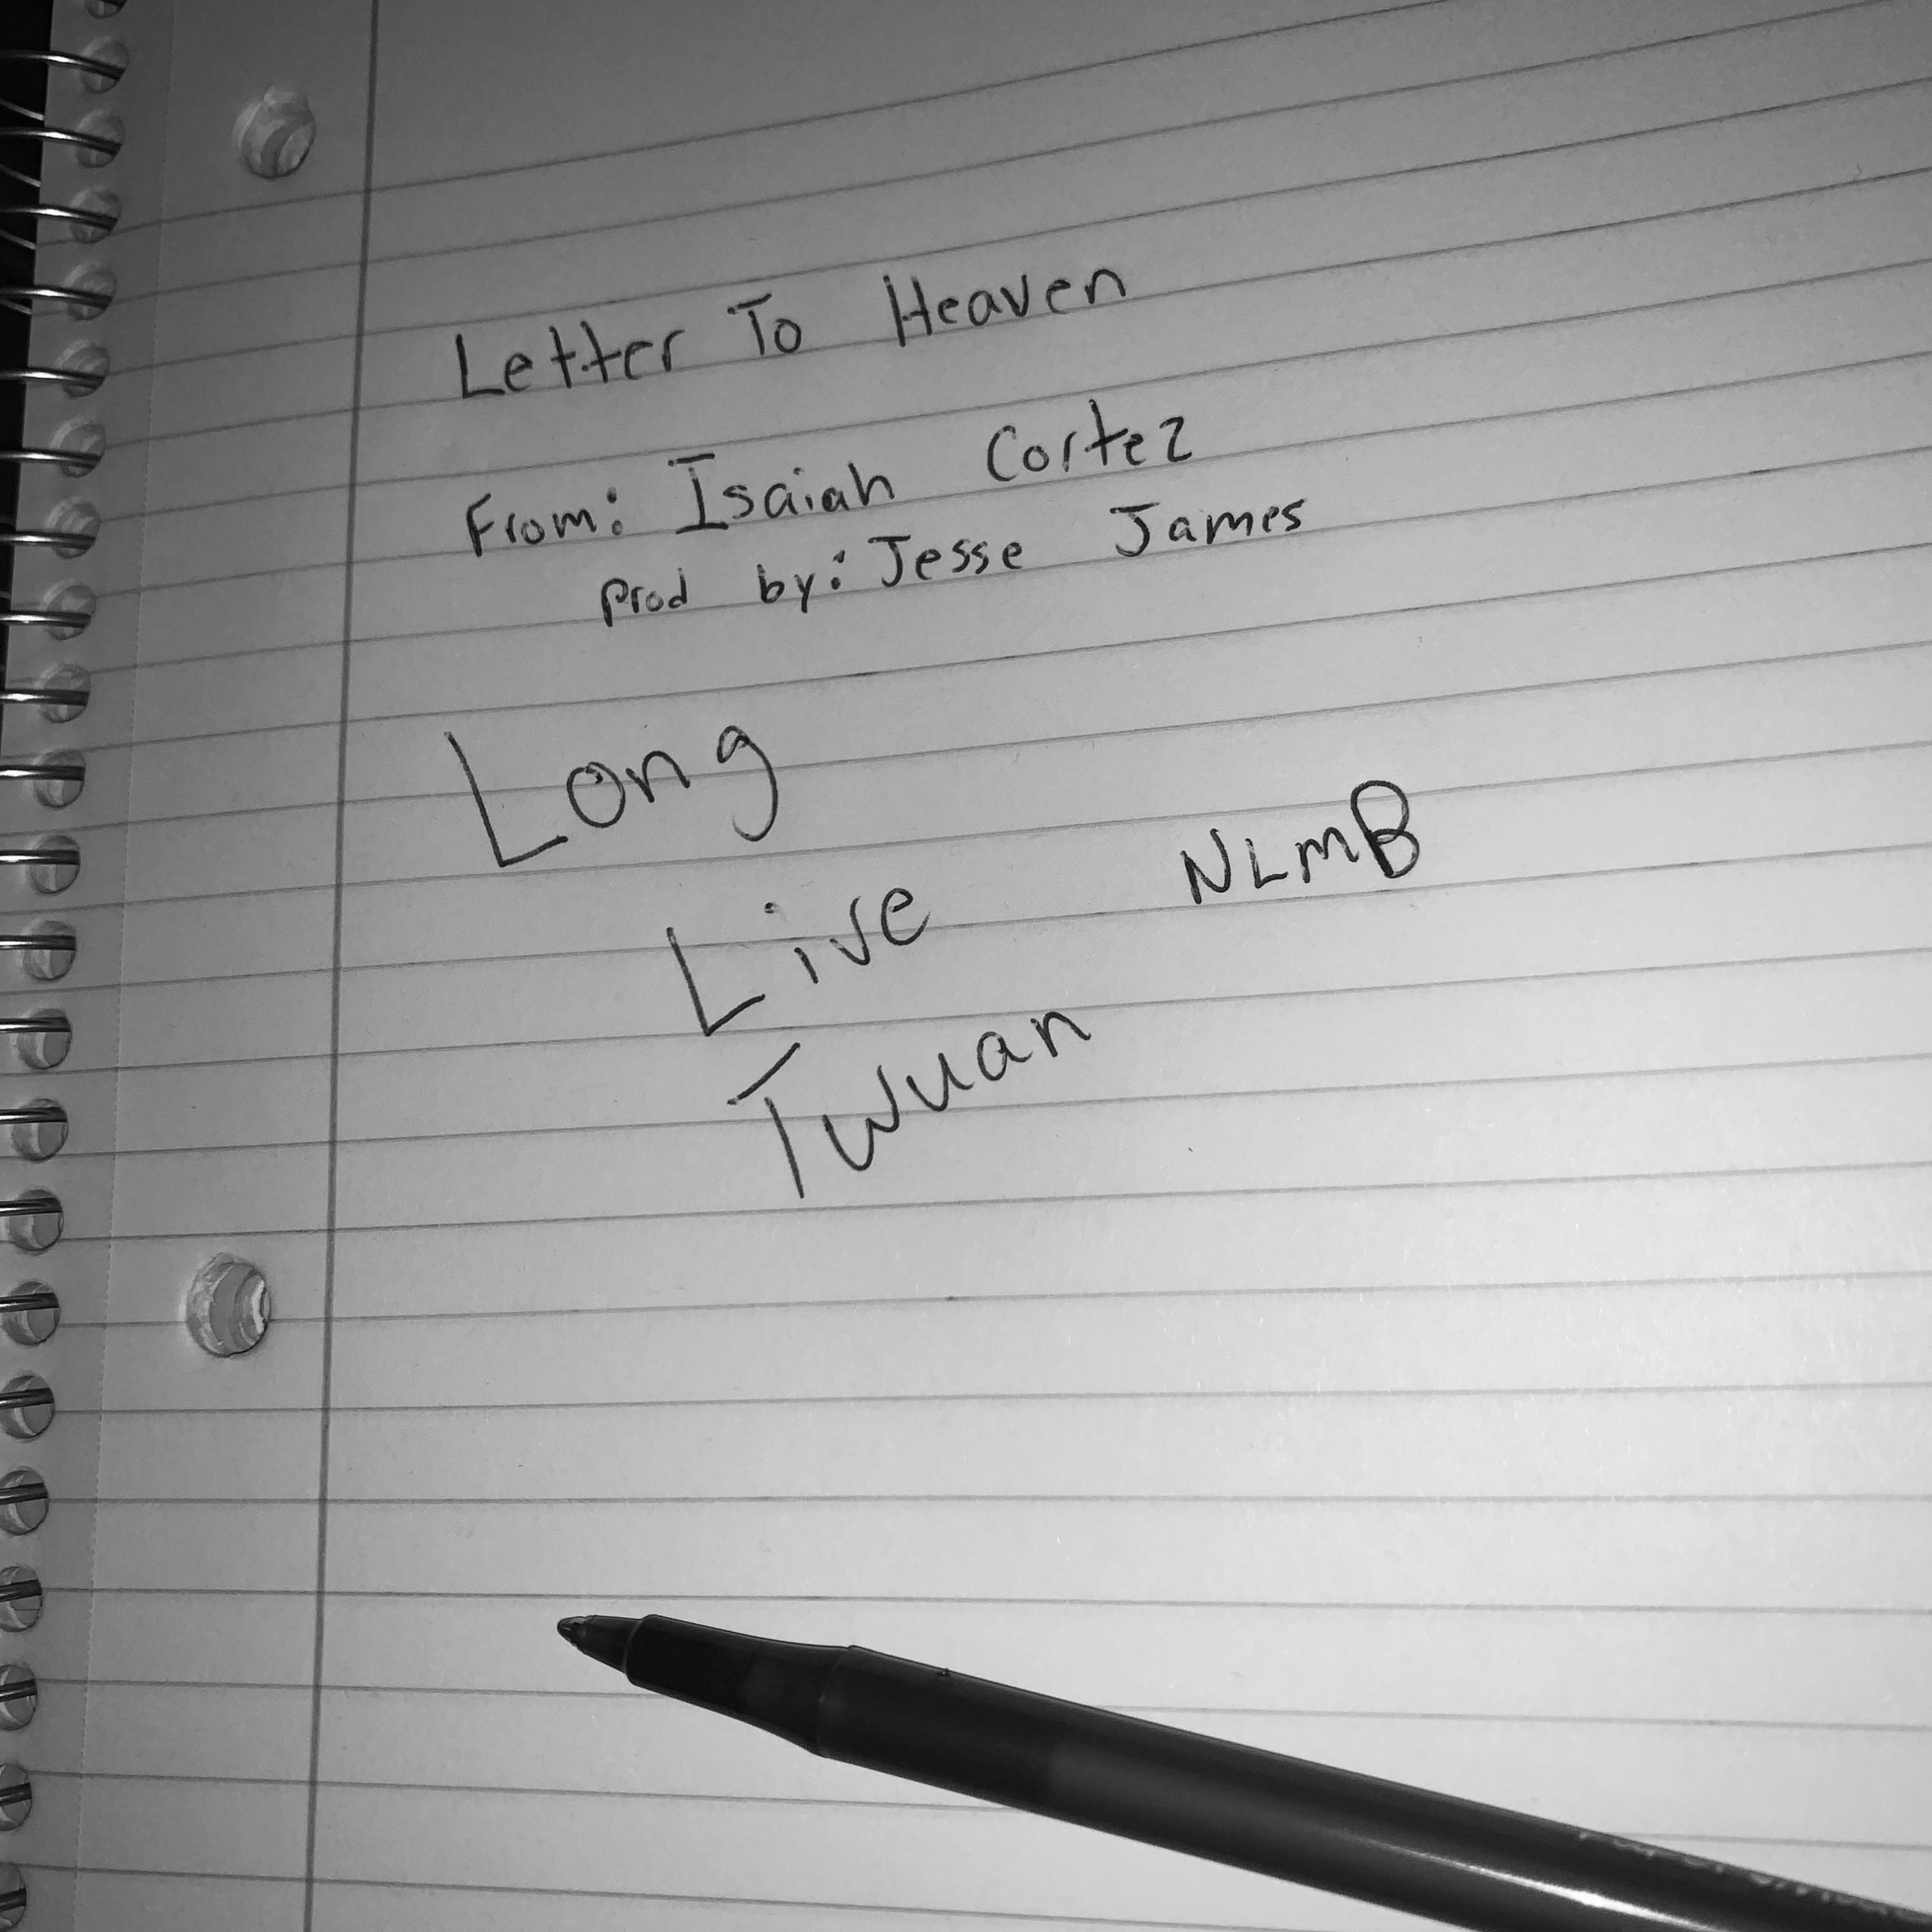 Letter To Heaven
From: Isaiah Cortez
Prod by: Jesse James
Long
Live
NLmB
Twuan